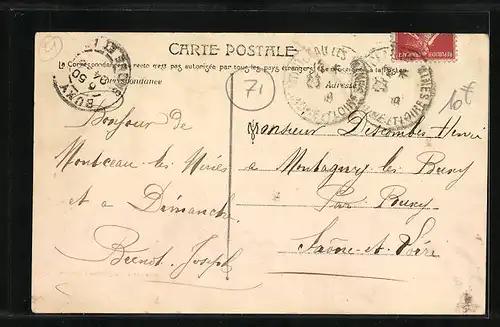 CARTE POSTALE
La Correspondance au recto n'est pas autorisée par tous les pays étrangers
Correspondance
Adresse
71
10f
BUXY
Bonjour de
Montceau-les-Mines
et a Dimanche
Joseph
Monsieur Descombes Henri
a Montagny les Buxy
Par Buxy
Saône-et-Loire